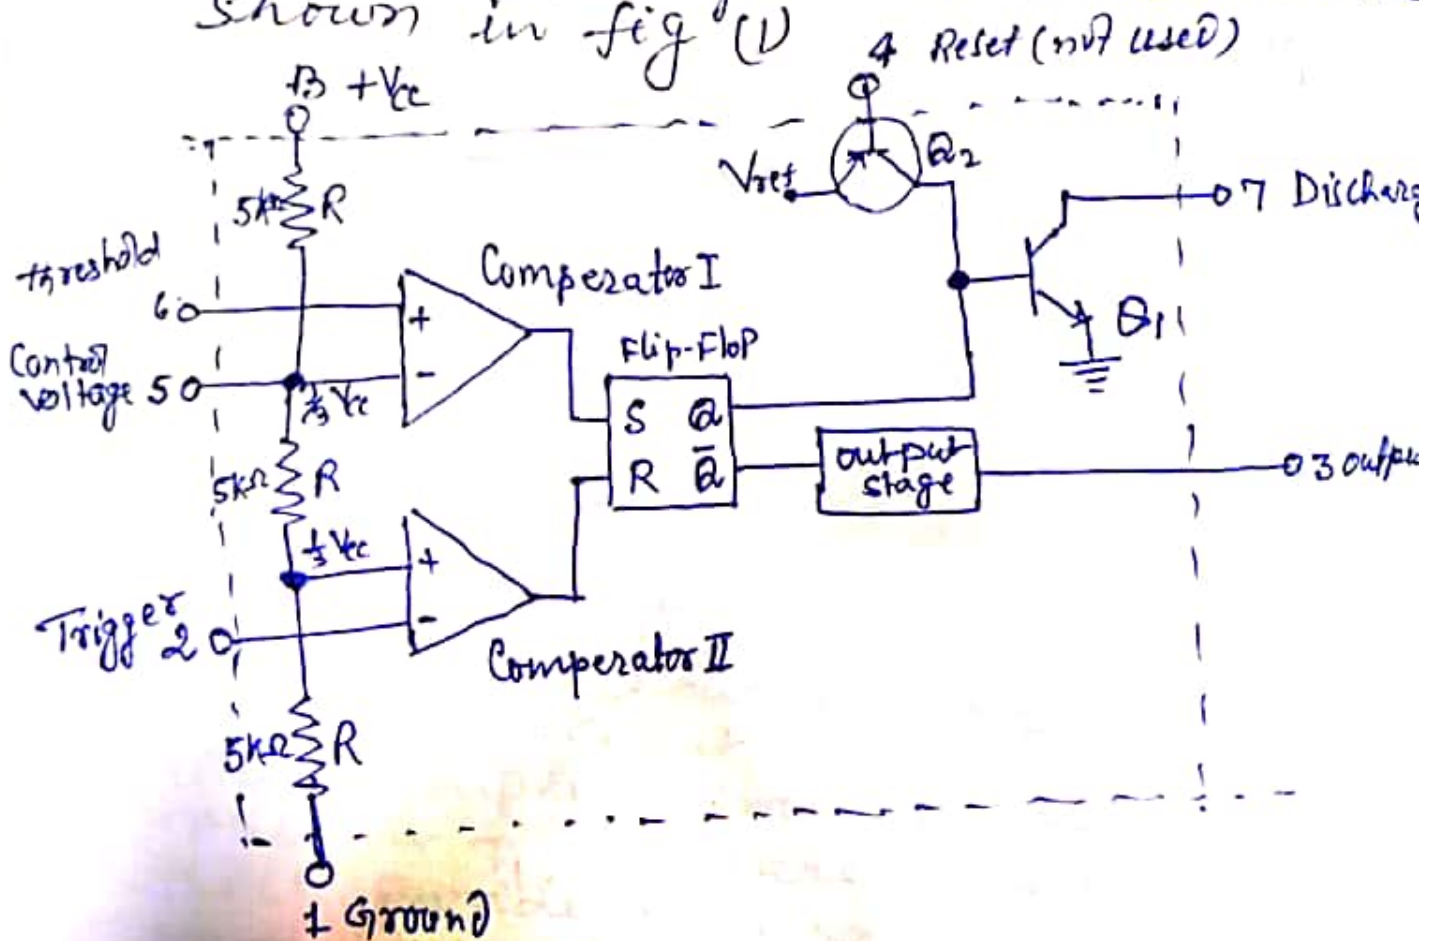 shown in fig (1)
4 Reset (not used)
B +Vcc
Q2
Vref
5kΩ R
7 Discharg
threshold
6
Comperator I
+
-
Q1
Flip-Flop
Control
voltage 5
2/3 Vcc
S Q
R Q̅
output
stage
3 outpu
5kΩ R
1/3 Vcc
+
-
Trigger
2
Comperator II
5kΩ R
1 Ground